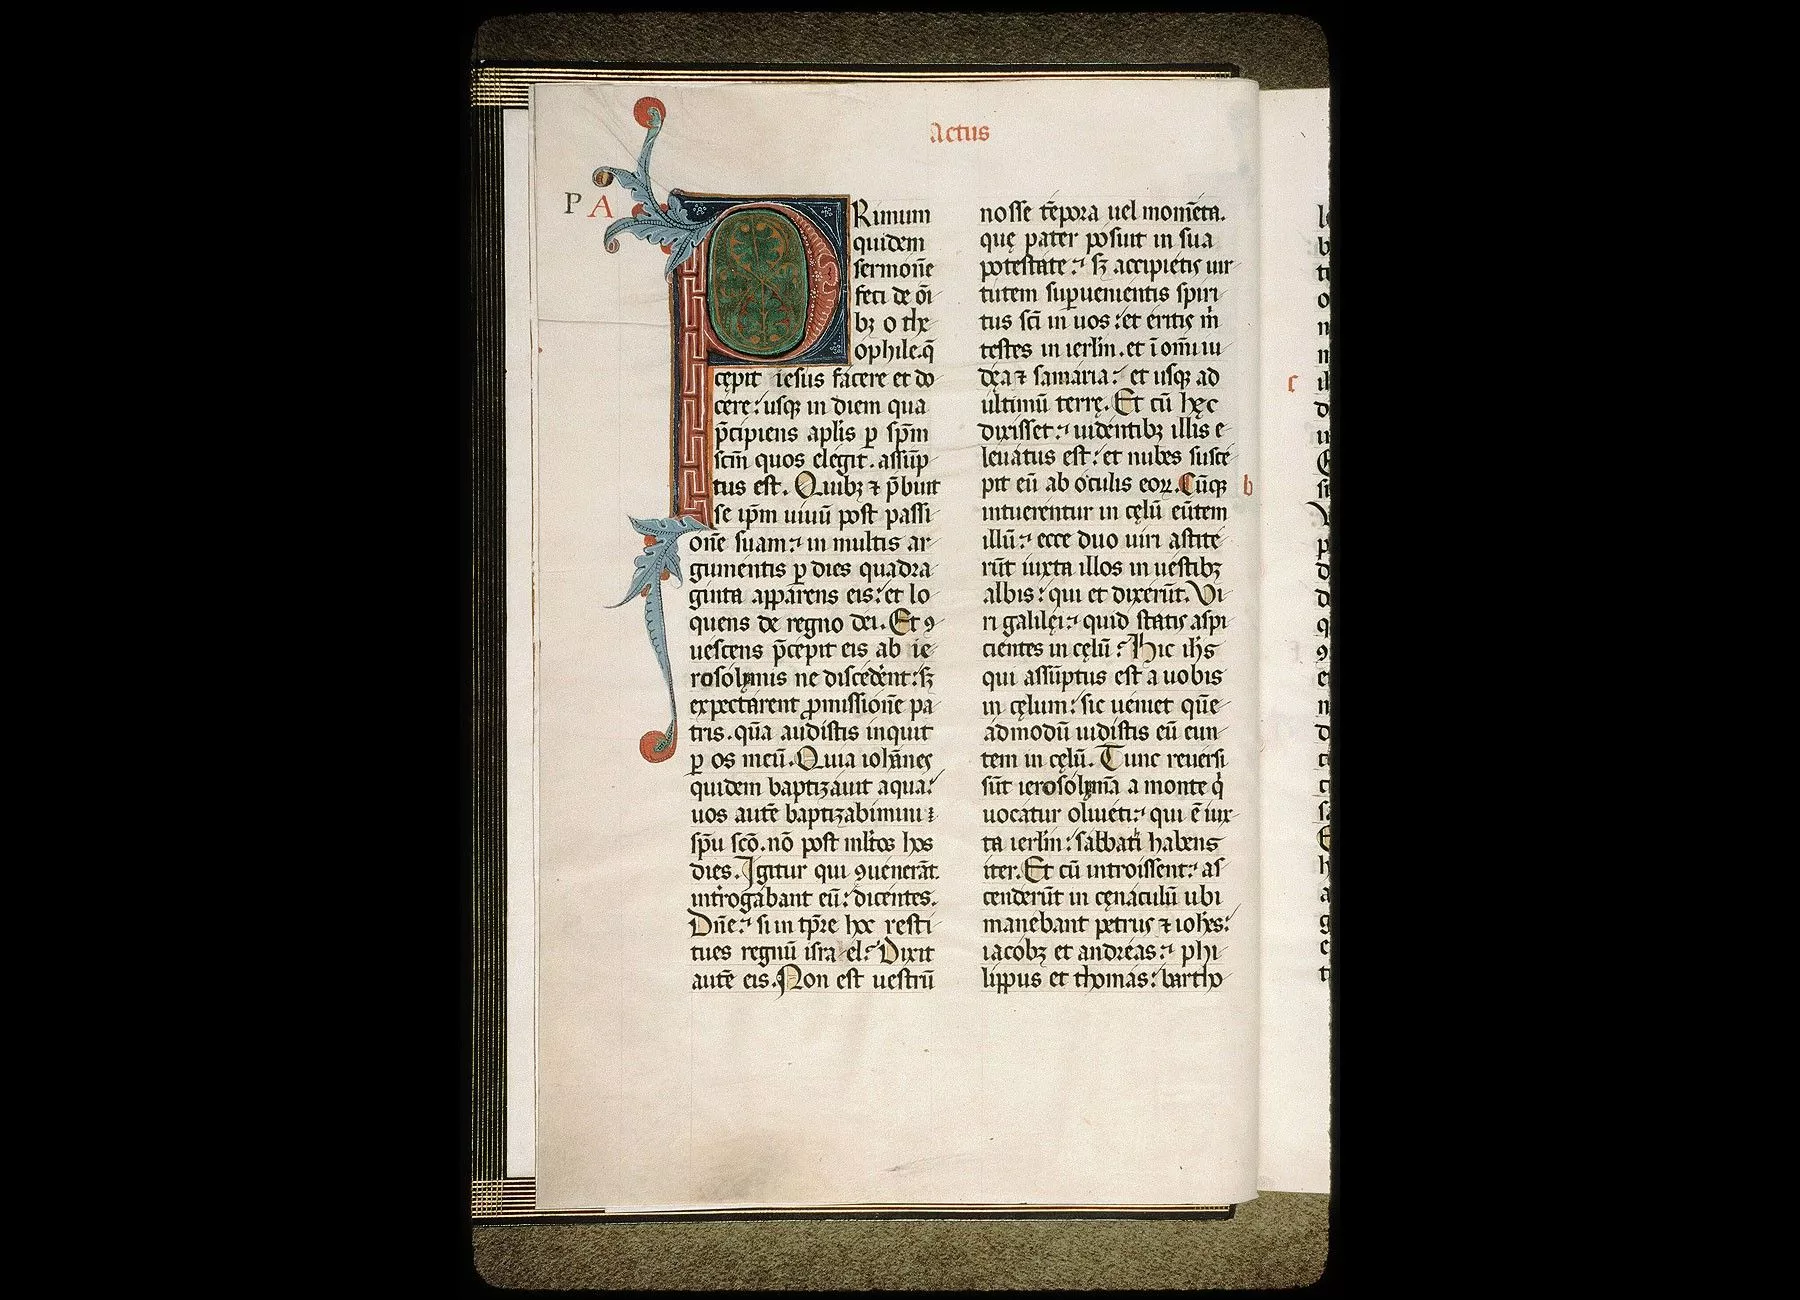 Actus
P A
PRimum
quidem
sermonē
feci de ōi
bꝫ o the
ophile.q̄
cępit iesus facere et do
cere: usqꝫ in diem qua
p̄cipiens aplis ꝑ sp̄m
scm̄ quos elegit. assūp
tus est. Quibꝫ ⁊ p̄buit
se ip̄m uiuū post passi
onē suam: in multis ar
gumentis ꝑ dies quadra
ginta apparens eis: et lo
quens de regno dei. Et ꝯ
uescens p̄cepit eis ab ie
rosolymis ne discederent: sꝫ
expectarent ꝓmissionē pa
tris. quā audistis inquit
ꝑ os meū. Quia iohannes
quidem baptizauit aqua:
uos autē baptizabimini
sp̄u scō. nō post ml̄tos hos
dies. Igitur qui ꝯuenerāt
introgabant eū: dicentes.
Dn̄e: si in tp̄re hoc resti
tues regnū israel? Dixit
autē eis. Non est uestrū
nosse tēpora uel momēta.
quę pater posuit in sua
potestate: sꝫ accipietis uir
tutem supuenientis spiri
tus sc̄i in uos: et eritis m̄
testes in ierlm̄. et ī omī iu
dęa ⁊ samaria: et usqꝫ ad
ultimū terrę. Et cū hęc
dixisset: uidentibꝫ illis e
leuatus est: et nubes susce
pit eū ab oculis eoꝝ. Cūqꝫ b
intuerentur in cęlū eūtem
illū: ecce duo uiri astite
rūt iuxta illos in uestibꝫ
albis: qui et dixerūt. Vi
ri galilęi: quid statis aspi
cientes in cęlū? Hic ih̄s
qui assūptus est a uobis
in cęlum: sic ueniet quē
admodū uidistis eū eun
tem in cęlū. Tunc reuersi
sūt ierosolymā a monte q̇
uocatur oliueti: qui ē iux
ta ierlm̄: sabbati habens
iter. Et cū introissent: as
cenderūt in cęnaculū ubi
manebant petrus ⁊ ioh̄es:
iacobꝫ et andreas: phi
lippus et thomas: bartho
c